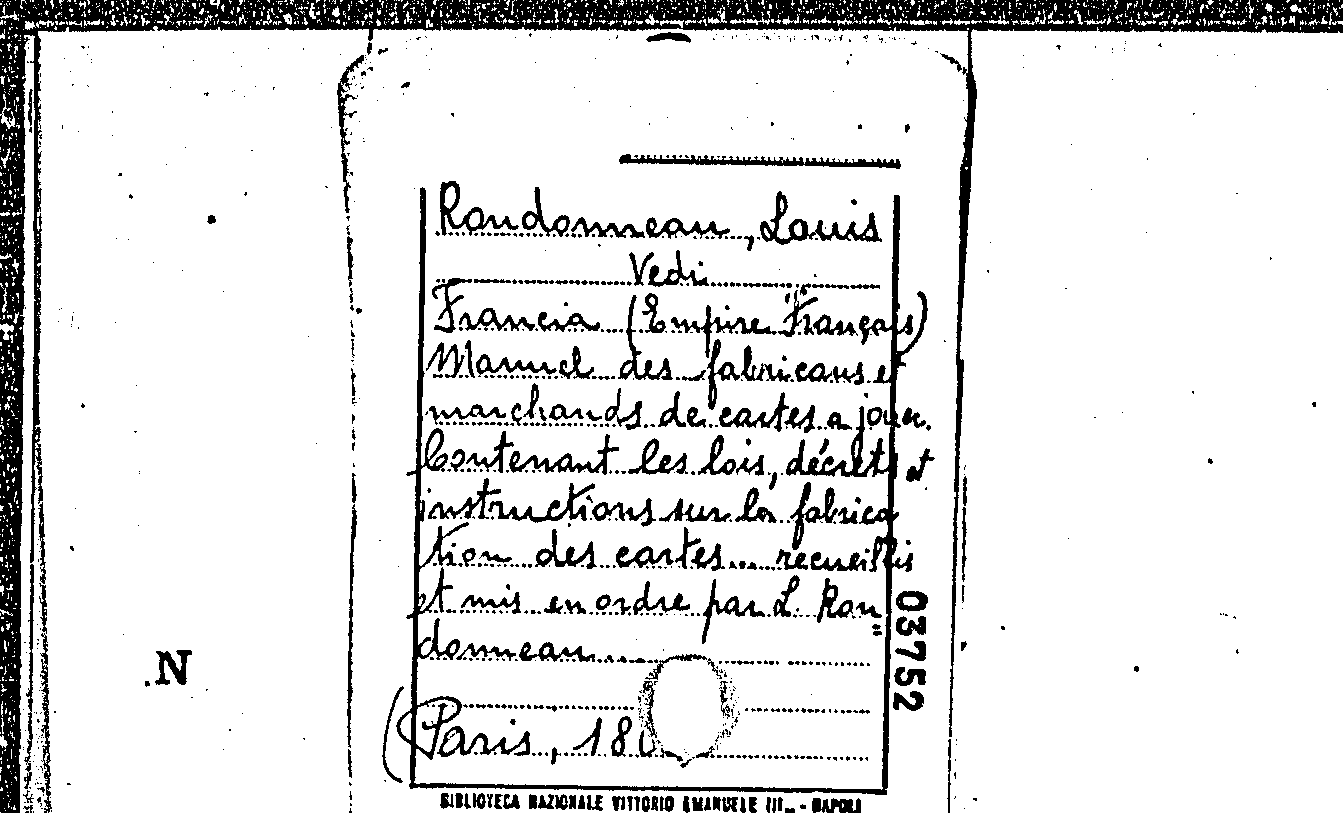 Rondonneau, Louis
Vedi
Francia (Empire Français)
Manuel des fabricans et
marchands de cartes a jouer.
Contenant les lois, décrets et
instructions sur la fabrica
tion des cartes... recueillis
et mis en ordre par L. Ron"
donneau...
(Paris, 180
03752
N
BIBLIOTECA NAZIONALE VITTORIO EMANUELE III - NAPOLI